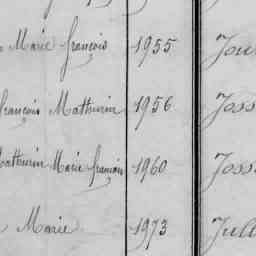 Marie françois 1955 Jou
françois Mathurin 1956 Joss
Mathurin Marie françois 1960 Joss
Marie 1973 Jull